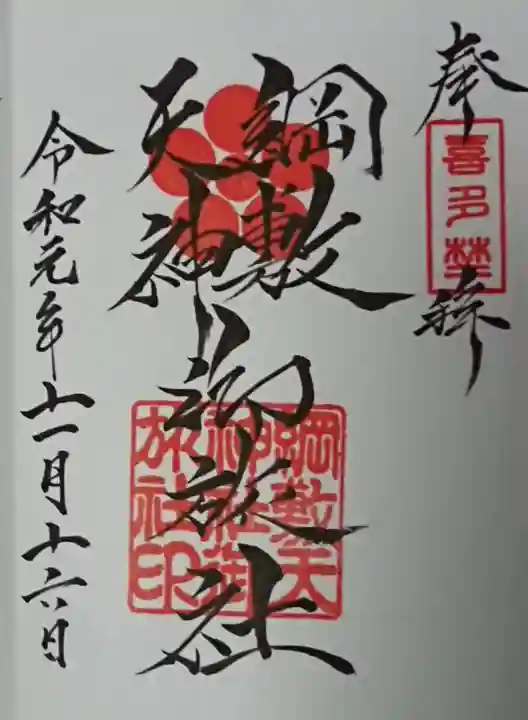 奉拝
喜多埜
綱敷
天神
御旅社
綱敷天
神社御
旅社印
令和元年十一月十六日